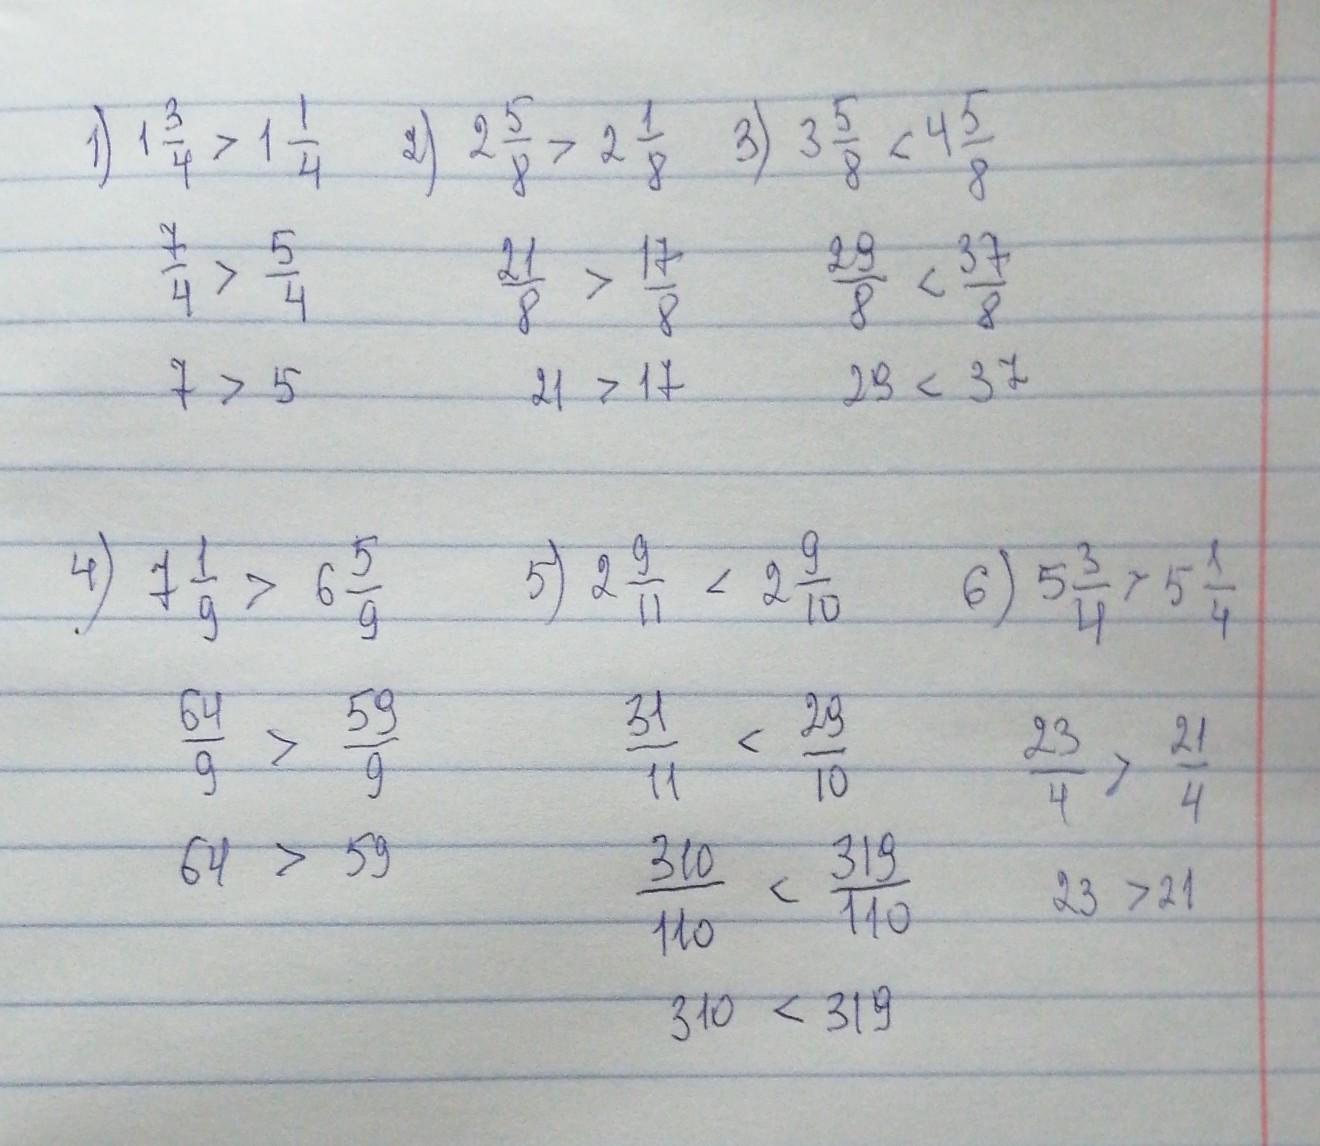 1) 1 3/4 > 1 1/4 2) 2 5/8 > 2 1/8 3) 3 5/8 < 4 5/8
7/4 > 5/4 21/8 > 17/8 29/8 < 37/8
7 > 5 21 > 17 29 < 37
4) 7 1/9 > 6 5/9 5) 2 9/11 < 2 9/10 6) 5 3/4 > 5 1/4
64/9 > 59/9 31/11 < 29/10 23/4 > 21/4
64 > 59 310/110 < 319/110 23 > 21
310 < 319